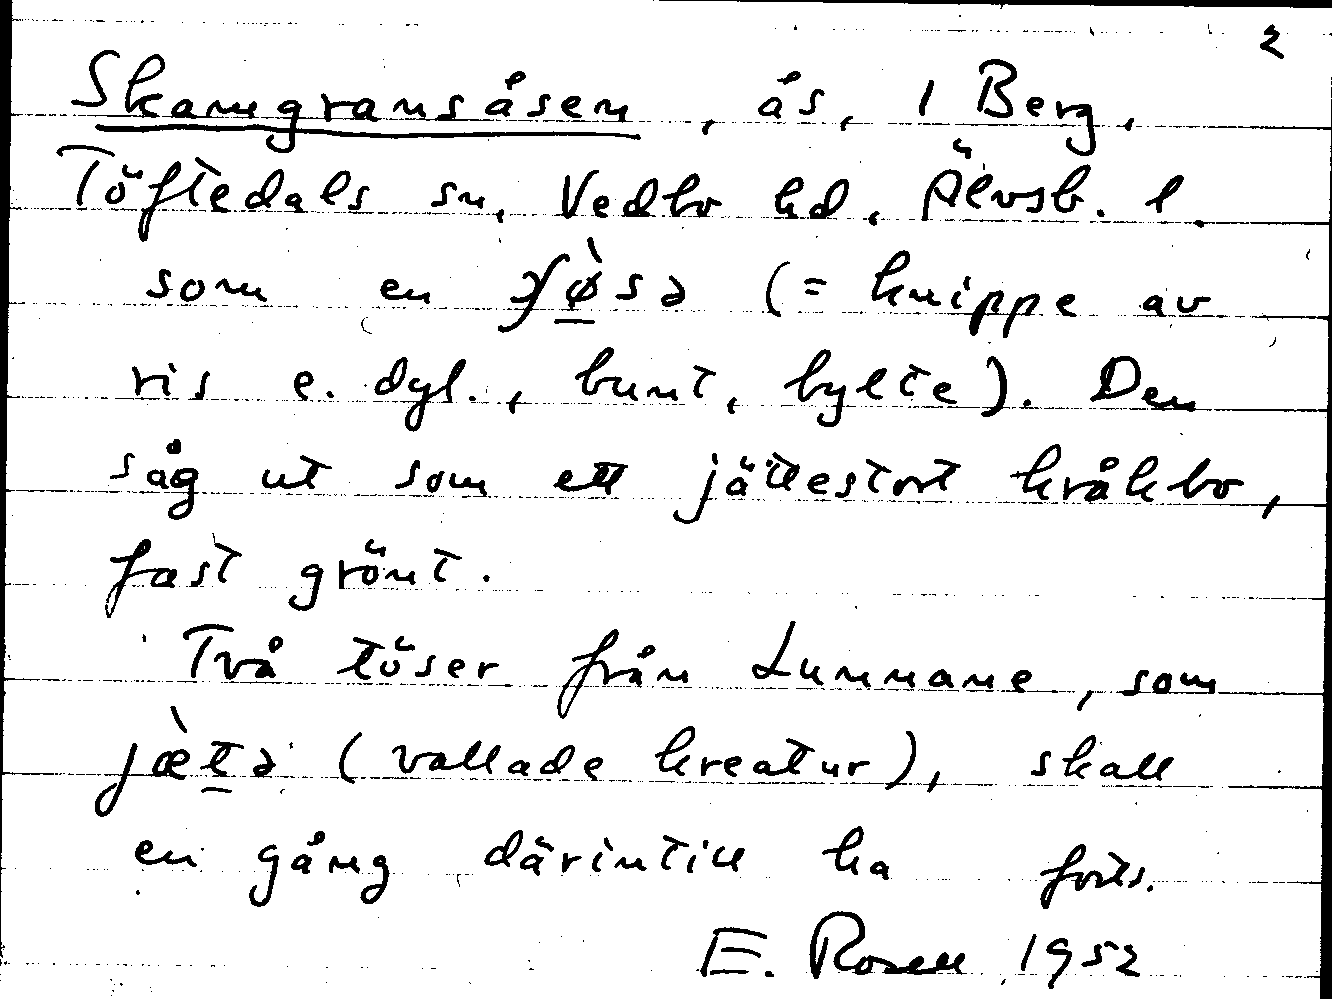 2
Skamgransåsen, ås, 1 Berg,
Töftedals sn, Vedbo hd, Älvsb. l.
som en (= knippe av
ris e. dyl., bunt, bylte). Den
såg ut som ett jättestort kråkbo,
fast grönt.
Två töser från Lunnane, som
jæ̀tə (vallade kreatur), skall
en gång därintill ha forts.
E. Rosell 1952